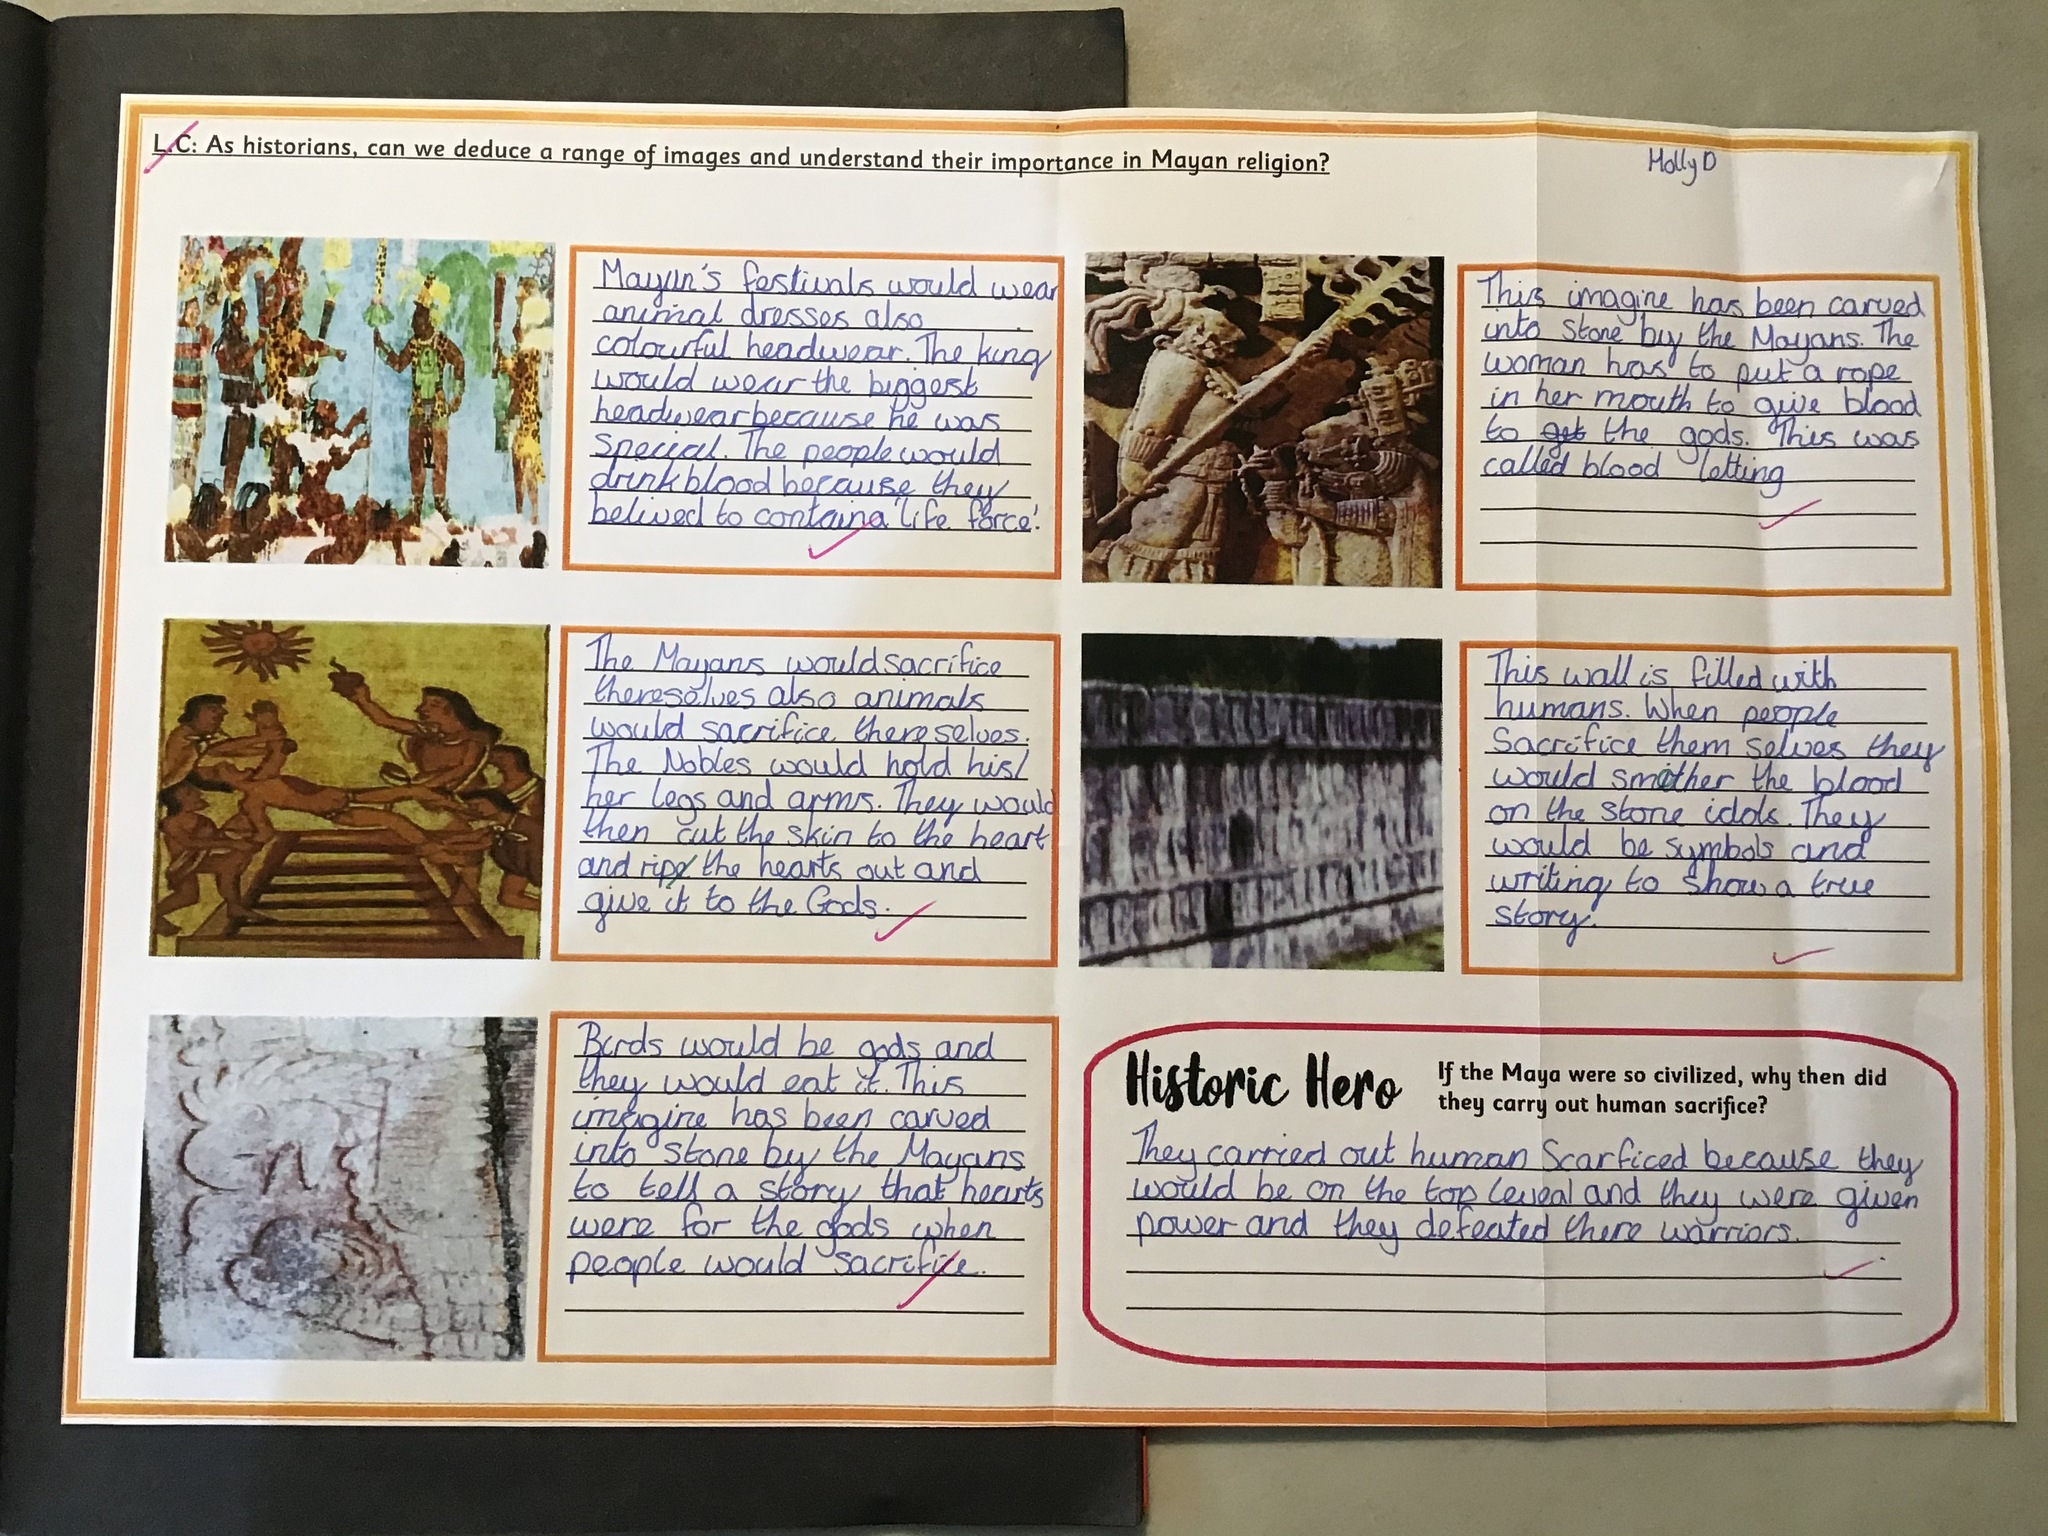 L.C: As historians, can we deduce a range of images and understand their importance in Mayan religion?
Molly D
Mayan's festivals would wear
animal dresses also
colourful headwear. The king
would wear the biggest
headwear because he was
special. The people would
drink blood because they
belived to contain a 'life force'.
This imagine has been carved
into stone by the Mayans. The
woman has to put a rope
in her mouth to give blood
to get the gods. This was
called blood letting
The Mayans would sacrifice
thereselves also animals
would sacrifice thereselves.
The Nobles would hold his/
her legs and arms. They would
then cut the skin to the heart
and rip the hearts out and
give it to the Gods.
This wall is filled with
humans. When people
Sacrifice them selves they
would smother the blood
on the stone idols. They
would be symbols and
writing to show a true
story.
Birds would be gods and
they would eat it. This
imagine has been carved
into stone by the Mayans
to tell a story that hearts
were for the gods when
people would sacrifice.
Historic Hero
If the Maya were so civilized, why then did
they carry out human sacrifice?
They carried out human Scarficed because they
would be on the top leveal and they were given
power and they defeated there warriors.